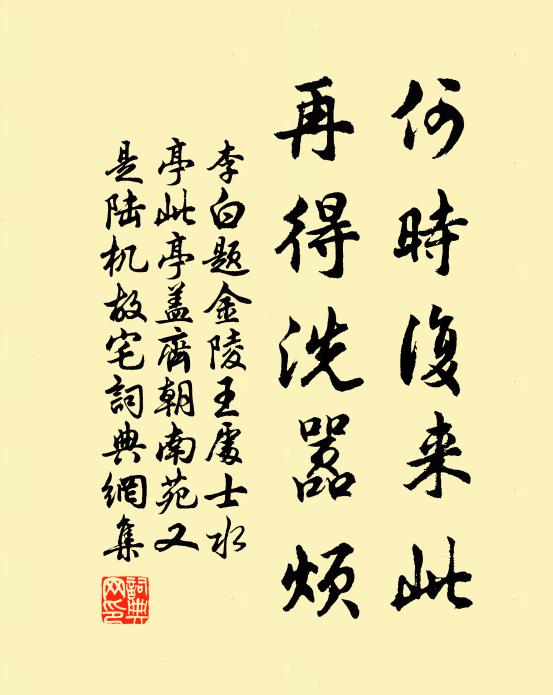 何時復来此
再得洗囂煩
李白题金陵王處士水
亭此亭蓋齊朝南苑又
是陆机故宅詞典網集
詞典網印